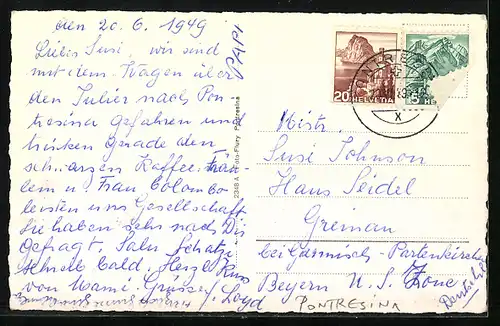 den 20. 6. 1949
Liebe Susi, wir sind
mit dem Wagen über
den Julier nach Pon
tresina gefahren und
trinken gerade den
schwarzen Kaffee. Fräu
lein u. Frau Colombo
leisten uns Gesellschaft
Sie haben sehr nach Dir
gefragt.
schreib bald. Herzl. Kuss
von Mami. Grüsse/ Loyd
PAPI
2338 Foto-Flury Pontresina
20 HELVETIA
5 HE
X
Mistr.
Susi Johnson
Haus Seidel
Greinau
bei Garmisch-Partenkirchen
Bayern U. S. Zone
Deutschl
PONTRESINA